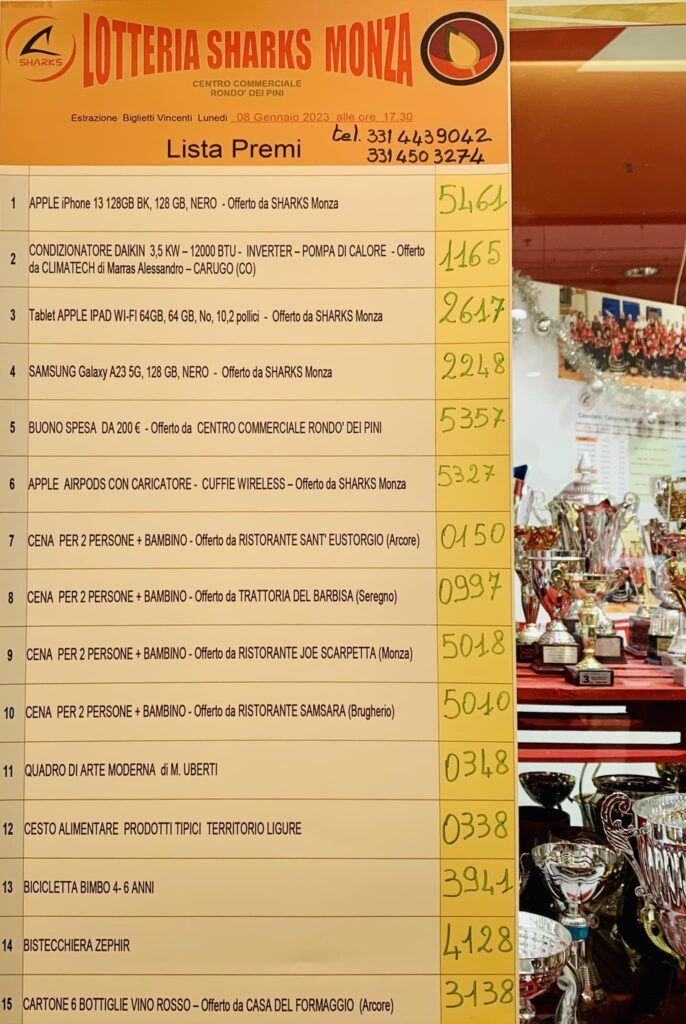 SHARKS
LOTTERIA SHARKS MONZA
CENTRO COMMERCIALE
RONDO' DEI PINI
Estrazione Biglietti Vincenti Lunedì 08 Gennaio 2023 alle ore 17,30
Lista Premi
tel. 331 4439042
331 4503274
1 APPLE iPhone 13 128GB BK, 128 GB, NERO - Offerto da SHARKS Monza 5461
2 CONDIZIONATORE DAIKIN 3,5 KW – 12000 BTU - INVERTER – POMPA DI CALORE - Offerto
da CLIMATECH di Marras Alessandro – CARUGO (CO) 1165
3 Tablet APPLE IPAD WI-FI 64GB, 64 GB, No, 10,2 pollici - Offerto da SHARKS Monza 2617
4 SAMSUNG Galaxy A23 5G, 128 GB, NERO - Offerto da SHARKS Monza 2248
5 BUONO SPESA DA 200 € - Offerto da CENTRO COMMERCIALE RONDO' DEI PINI 5357
6 APPLE AIRPODS CON CARICATORE - CUFFIE WIRELESS – Offerto da SHARKS Monza 5327
7 CENA PER 2 PERSONE + BAMBINO - Offerto da RISTORANTE SANT' EUSTORGIO (Arcore) 0150
8 CENA PER 2 PERSONE + BAMBINO - Offerto da TRATTORIA DEL BARBISA (Seregno) 0997
9 CENA PER 2 PERSONE + BAMBINO - Offerto da RISTORANTE JOE SCARPETTA (Monza) 5018
10 CENA PER 2 PERSONE + BAMBINO - Offerto da RISTORANTE SAMSARA (Brugherio) 5010
11 QUADRO DI ARTE MODERNA di M. UBERTI 0348
12 CESTO ALIMENTARE PRODOTTI TIPICI TERRITORIO LIGURE 0338
13 BICICLETTA BIMBO 4- 6 ANNI 3941
14 BISTECCHIERA ZEPHIR 4128
15 CARTONE 6 BOTTIGLIE VINO ROSSO – Offerto da CASA DEL FORMAGGIO (Arcore) 3138